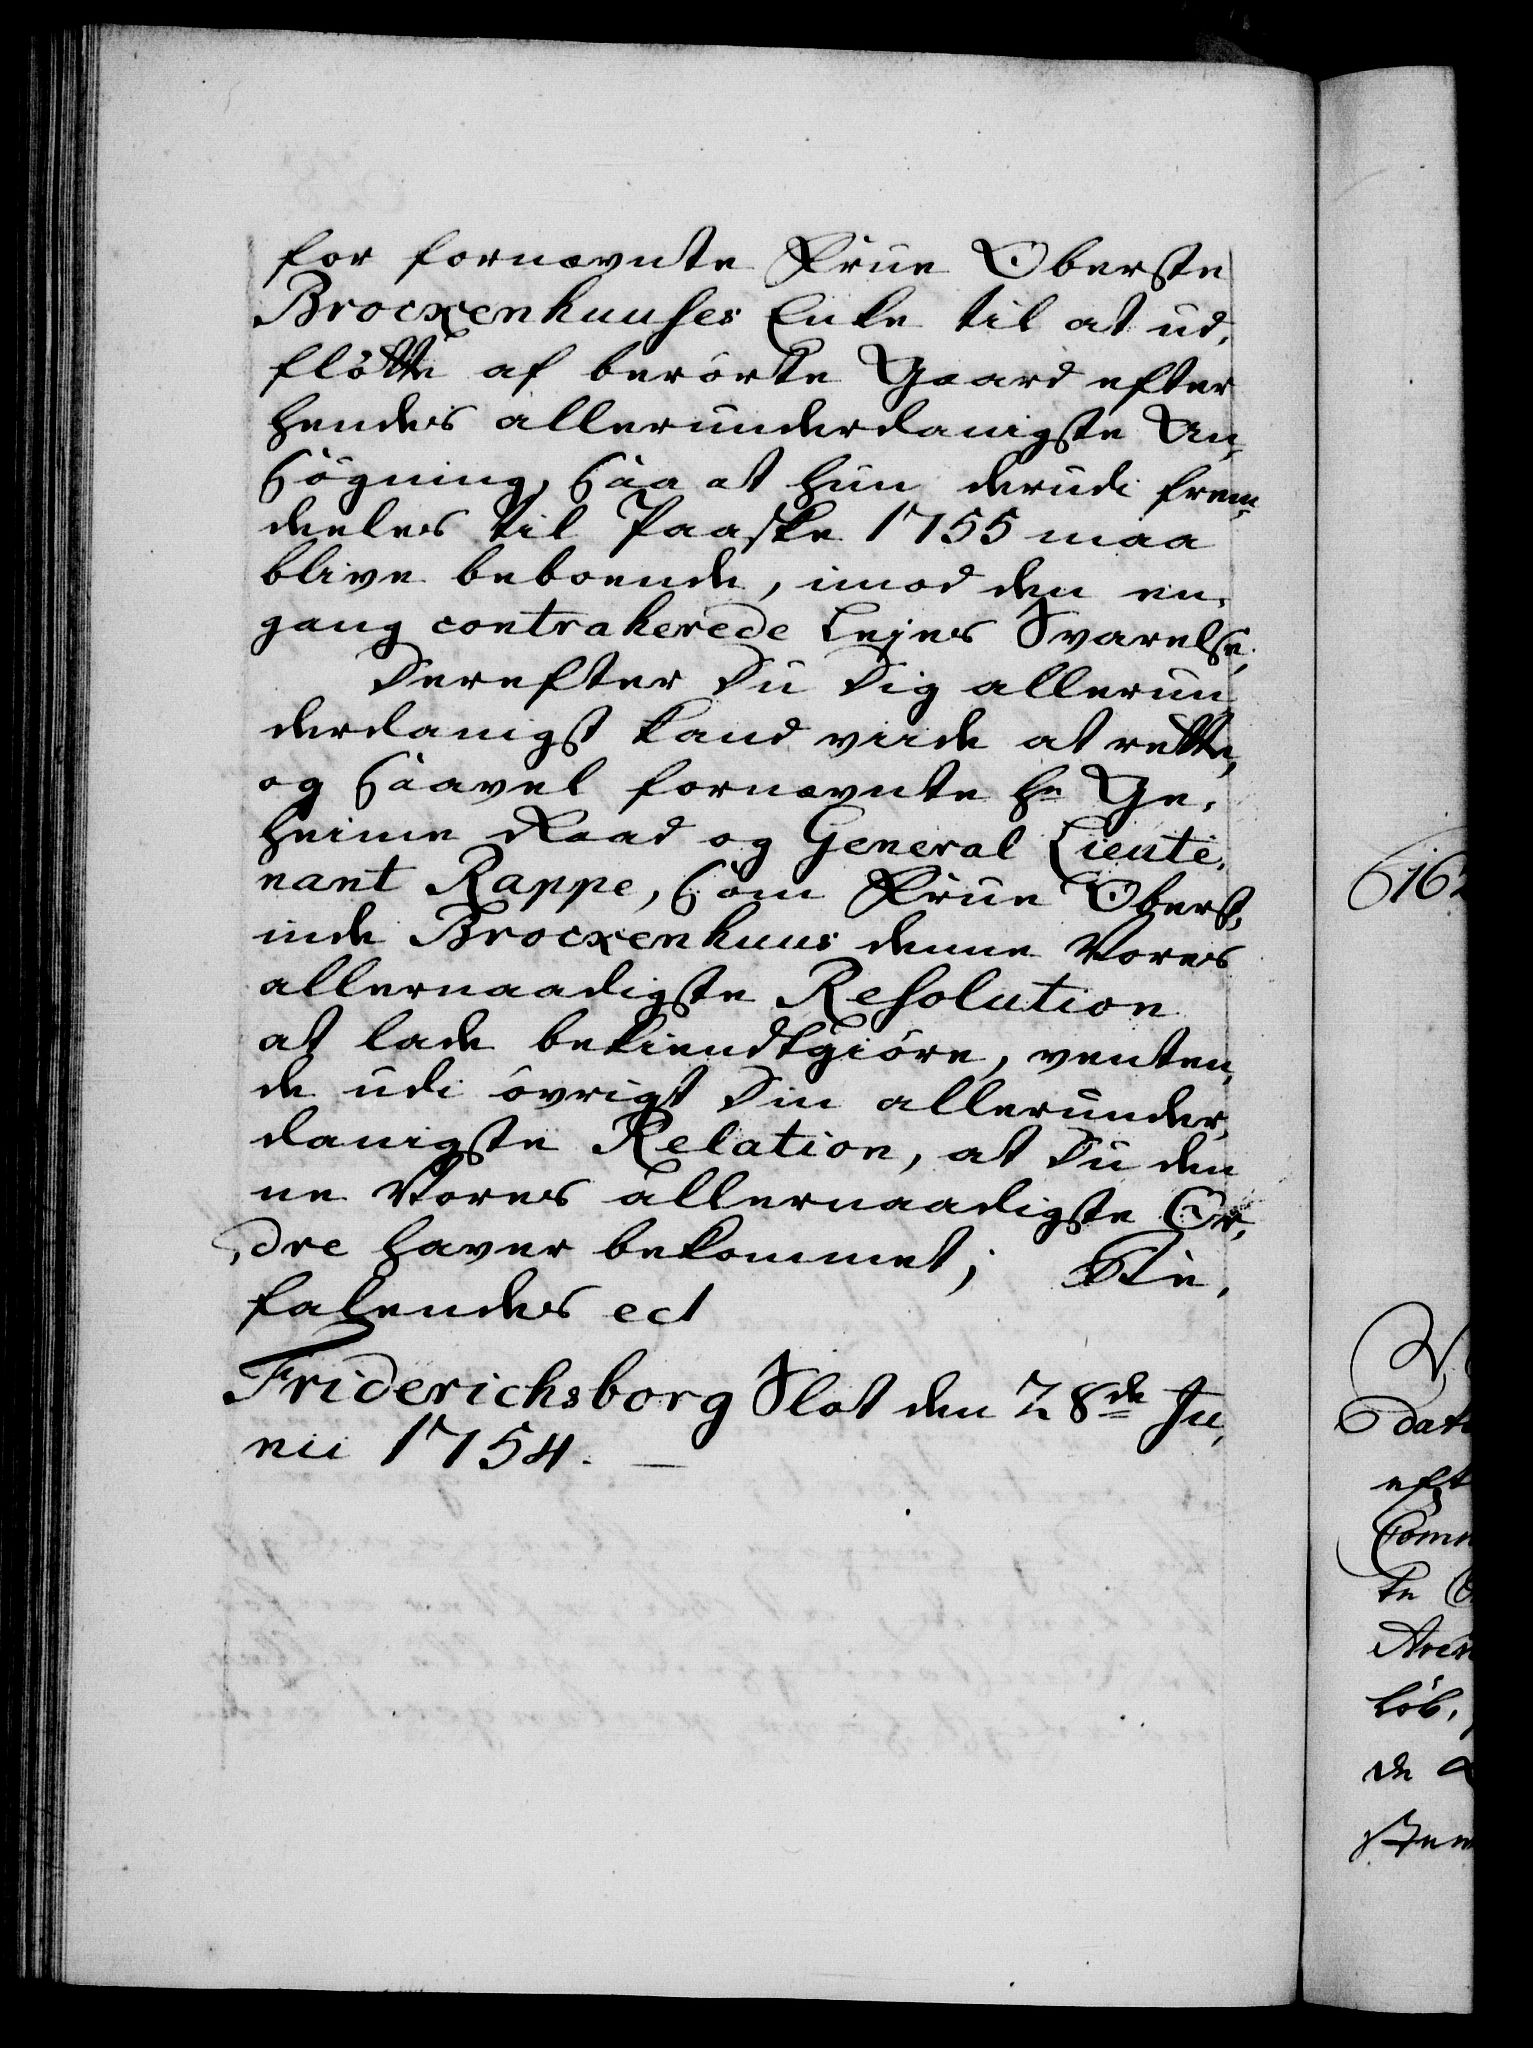 for fornævnte Frue Oberste
Brocxenhuuses Enke til at ud,
fløtte af berørte Gaard efter
hendes allerunderdanigste An,
søgning, saa at hun derudi frem,
deeles til Paaske 1755 maa
blive beboende, imod den en,
gang contraherede Lejes Svarelse,
Derefter Du Dig allerun
derdanigst kand viide at rette,
og saavel fornævnte Hr Ge,
heime Raad og General Lieute,
nant Rappe, som Frue Oberst,
inde Brocxenhuus denne Vores
allernaadigste Resolution
at lade bekiendtgiøre, venten,
de udi øvrigt Din allerunder,
danigste Relation, at Du den
ne Vores allernaadigste Or,
dre haver bekommet;
falendes ect
Friderichsborg Slot den 28de Ju,
nii 1754.
162
dat
eft
Comm
te
løb,
de